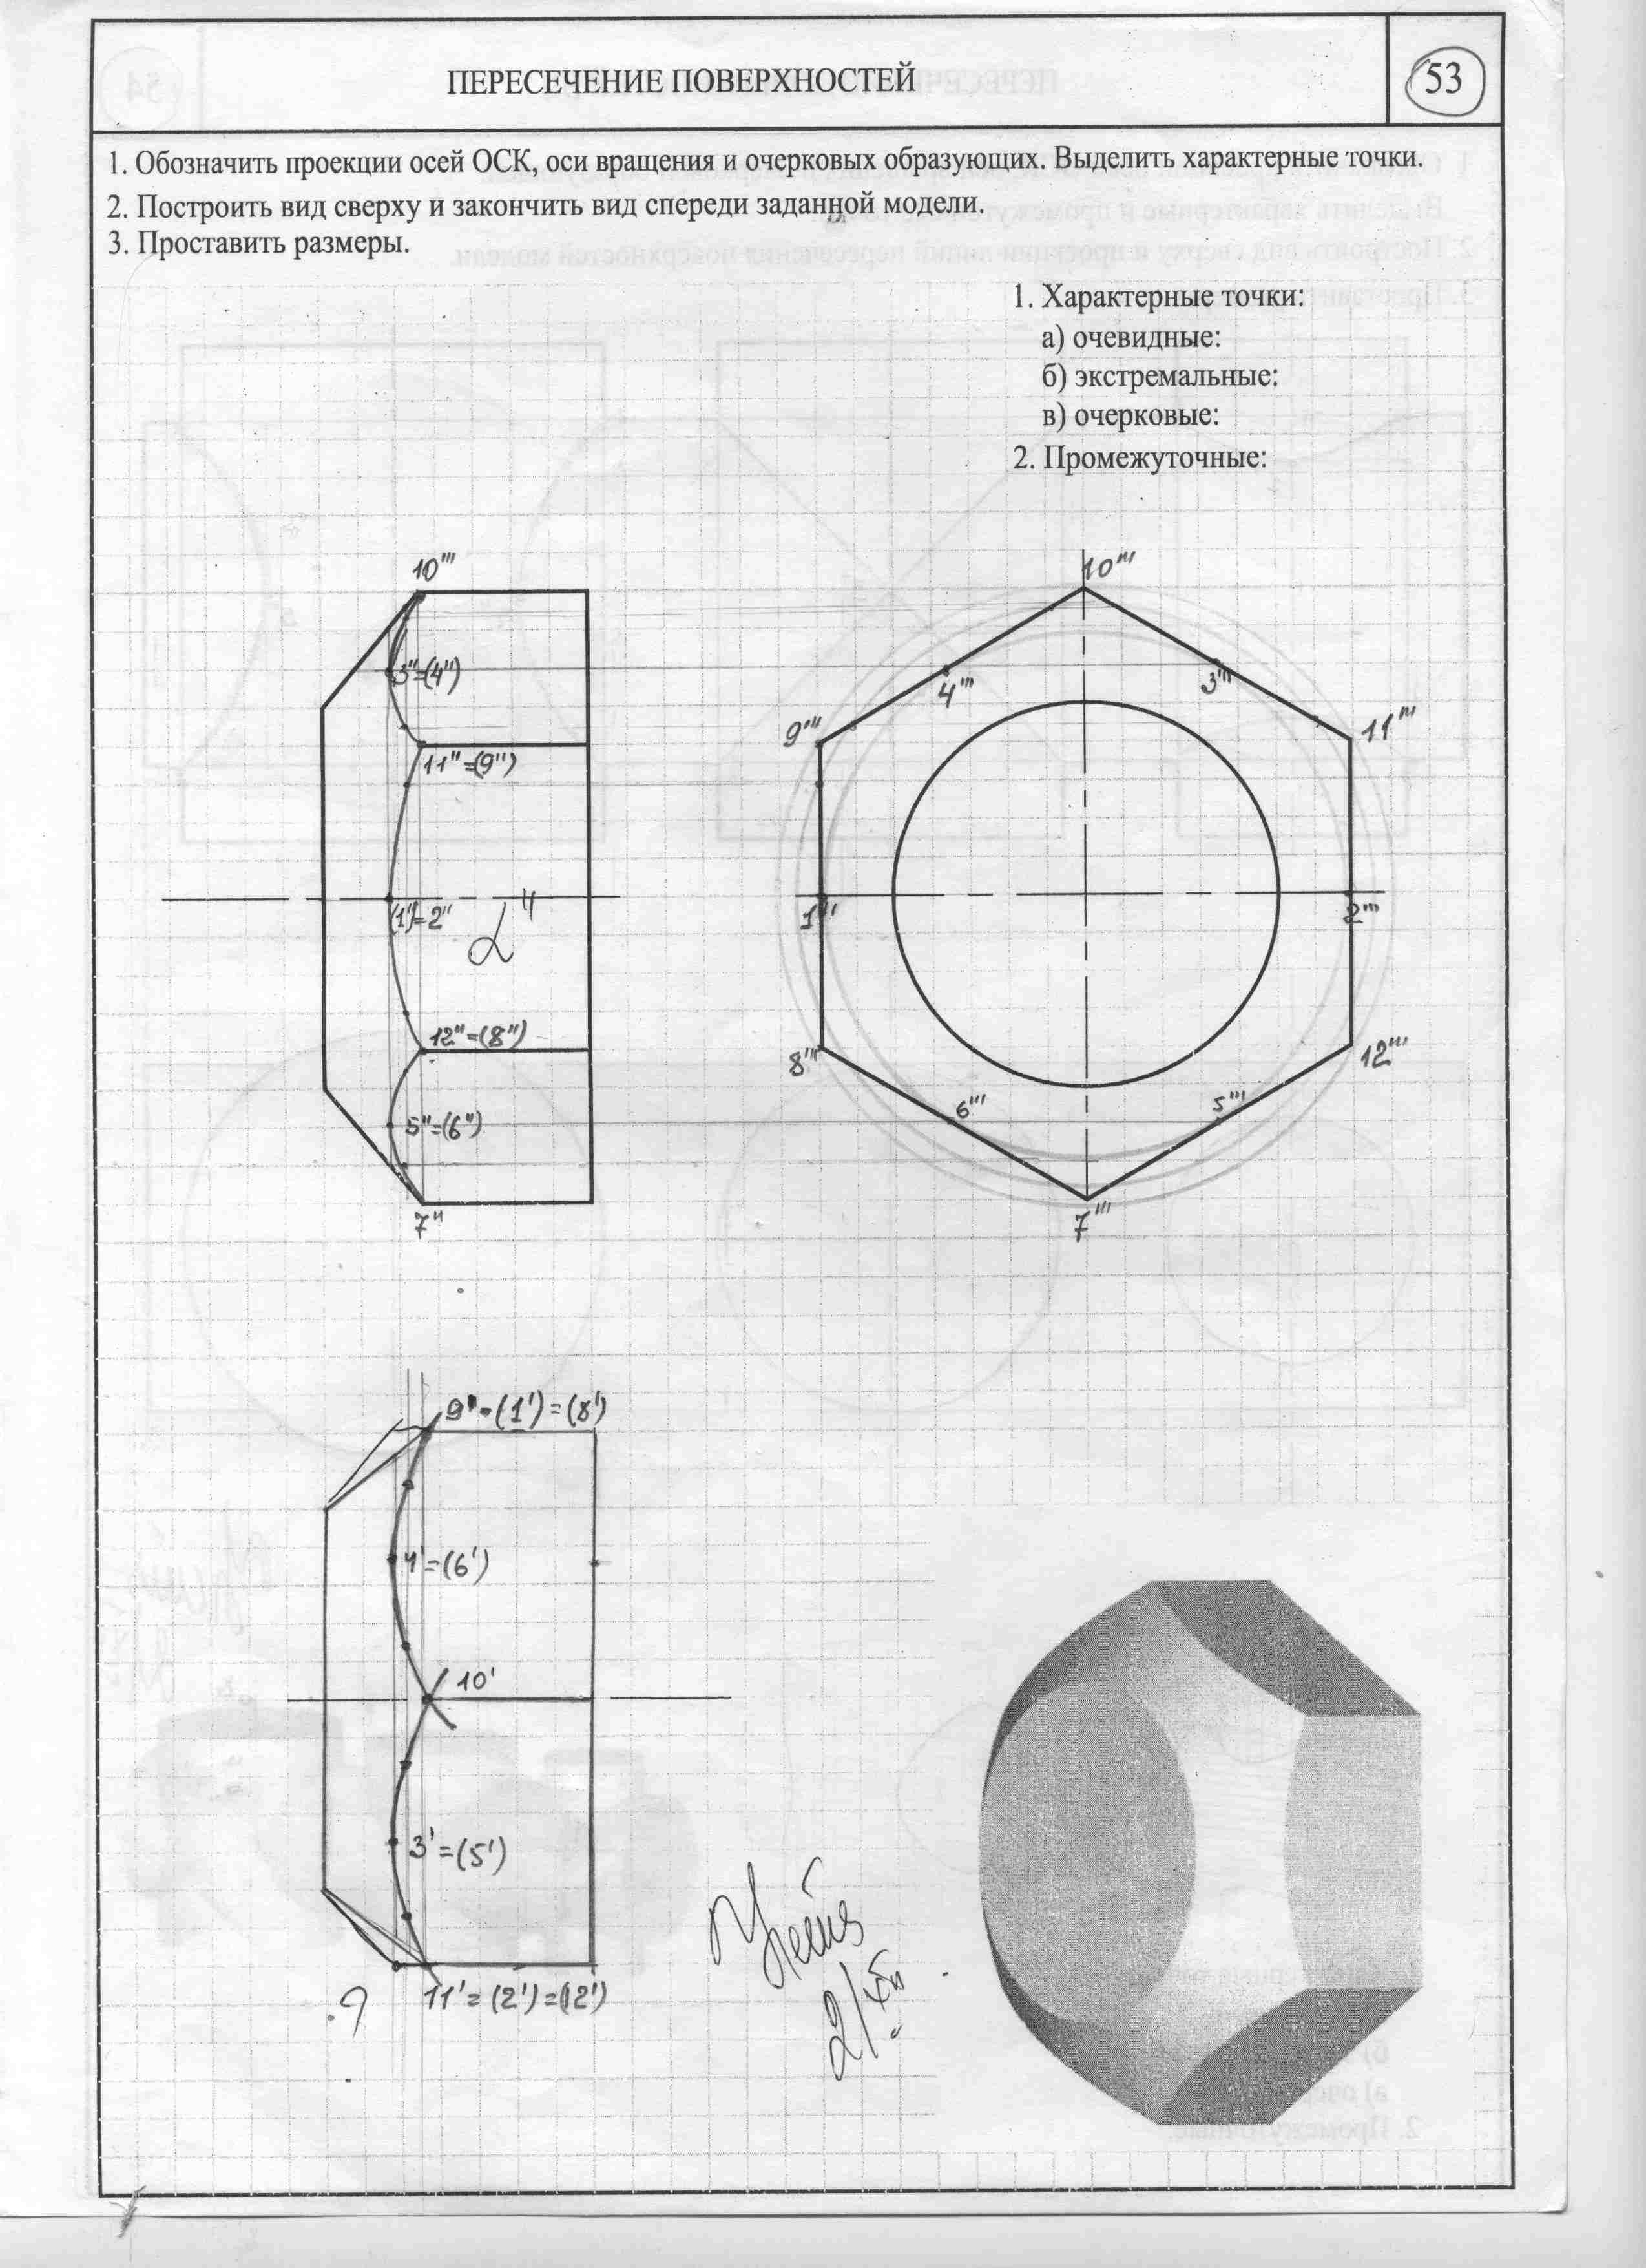 ПЕРЕСЕЧЕНИЕ ПОВЕРХНОСТЕЙ
53
1. Обозначить проекции осей ОСК, оси вращения и очерковых образующих. Выделить характерные точки.
2. Построить вид сверху и закончить вид спереди заданной модели.
3. Проставить размеры.
1. Характерные точки:
а) очевидные:
б) экстремальные:
в) очерковые:
2. Промежуточные:
10'''
10'''
3''=(4'')
4'''
3'''
9'''
11'''
11''=(9'')
(1')=2''
1'''
2'''
12''=(8'')
8'''
12'''
5''=(6'')
6'''
5'''
7''
7'''
9'=(1')=(8')
4'=(6')
10'
3'=(5')
11'=(2')=(12')